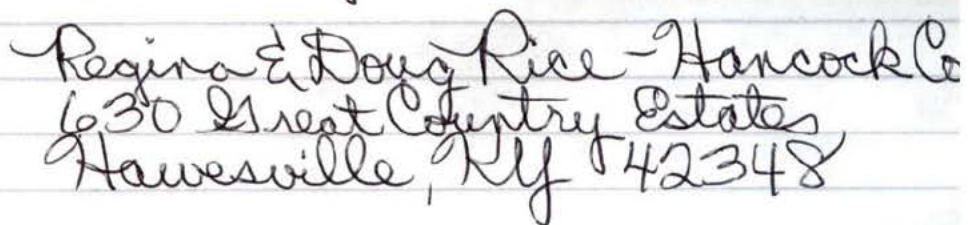 Regina & Doug Rice - Hancock Co
630 Great Country Estates
Hawesville, Ky 42348